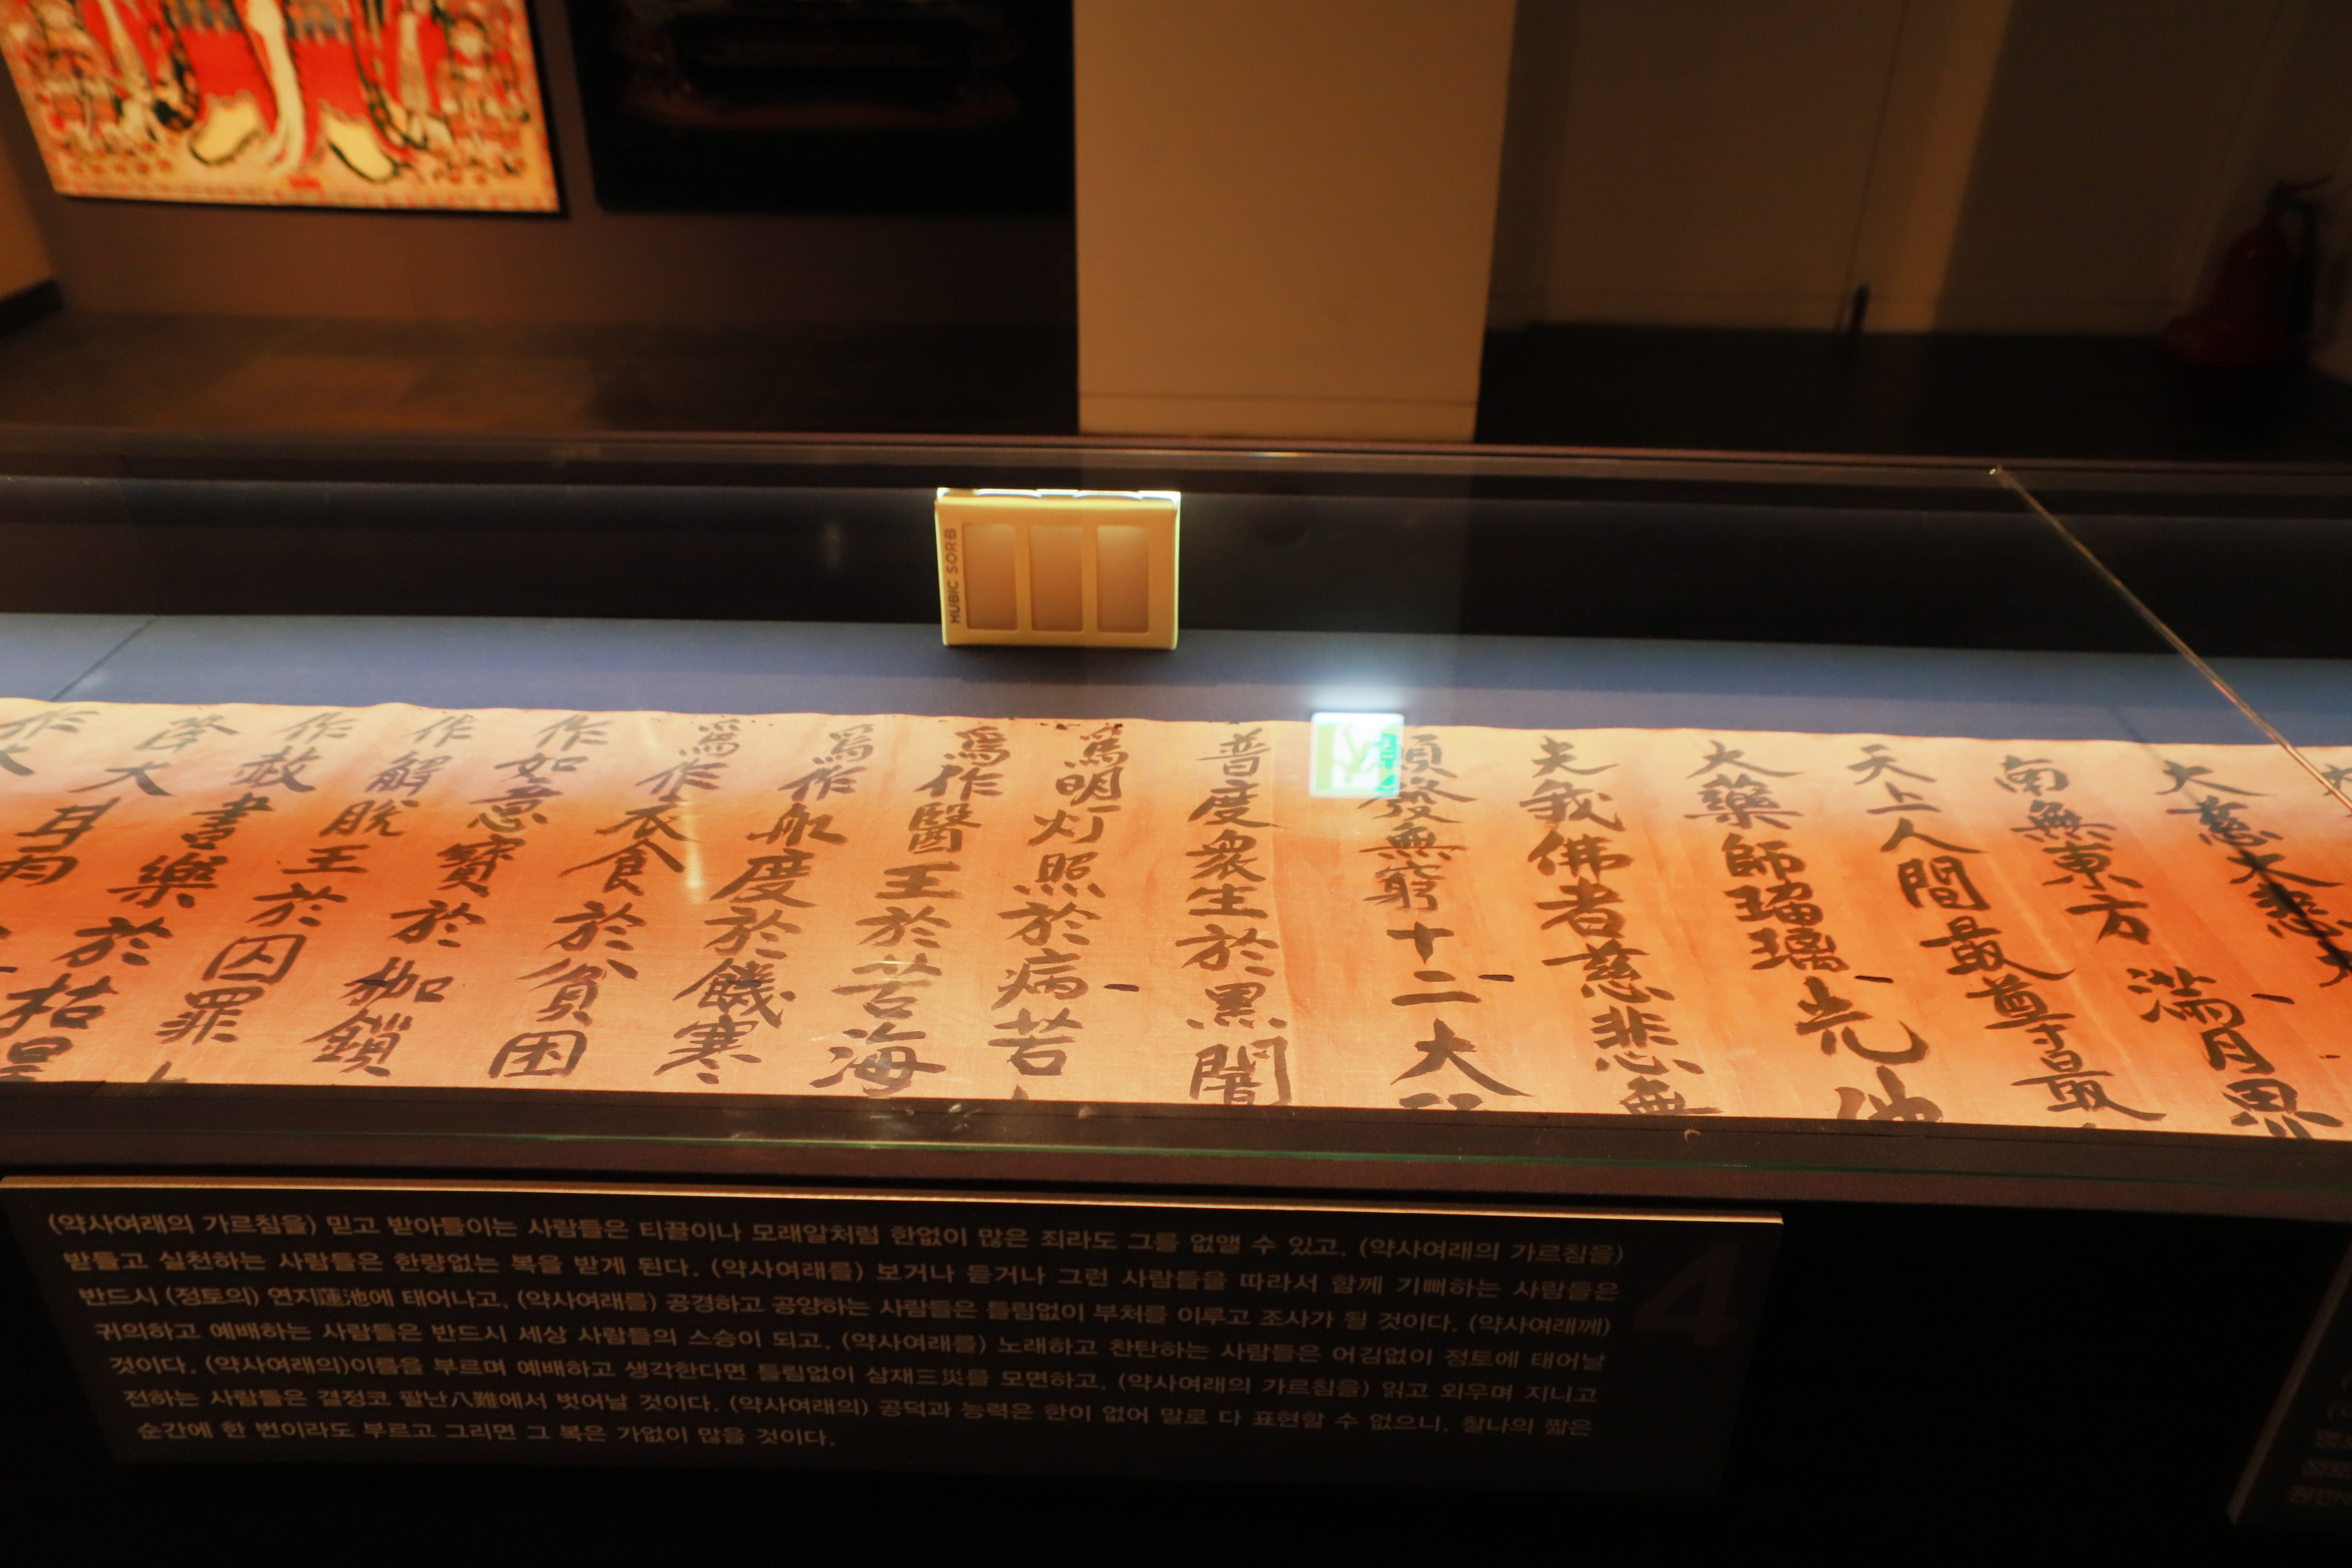 MUBIC SORB
大慈大悲大
南無東方 滿月界
天上人間最尊最
大藥師瑠璃光
夫我佛者慈悲無
願發無窮十二大
普度衆生於黒闇
爲明灯照於病苦
爲作醫王於苦海
爲作船度於饑寒
爲作衣食於貧困
作如意寶於枷鎖
作解脫王於囚罪
作赦書樂於枯
降大
作大
(약사여래의 가르침을) 믿고 받아들이는 사람들은 티끌이나 모래알처럼 한없이 많은 죄라도 그를 없앨 수 있고, (약사여래의 가르침을)
받들고 실천하는 사람들은 한량없는 복을 받게 된다. (약사여래를) 보거나 듣거나 그런 사람들을 따라서 함께 기뻐하는 사람들은
반드시 (정토의) 연지蓮池에 태어나고, (약사여래를) 공경하고 공양하는 사람들은 틀림없이 부처를 이루고 조사가 될 것이다. (약사여래께)
귀의하고 예배하는 사람들은 반드시 세상 사람들의 스승이 되고, (약사여래를) 노래하고 찬탄하는 사람들은 어김없이 정토에 태어날
것이다. (약사여래의)이름을 부르며 예배하고 생각한다면 틀림없이 삼재三災를 모면하고, (약사여래의 가르침을) 읽고 외우며 지니고
전하는 사람들은 결정코 팔난八難에서 벗어날 것이다. (약사여래의) 공덕과 능력은 한이 없어 말로 다 표현할 수 없으니, 찰나의 짧은
순간에 한 번이라도 부르고 그리면 그 복은 가없이 많을 것이다.
4